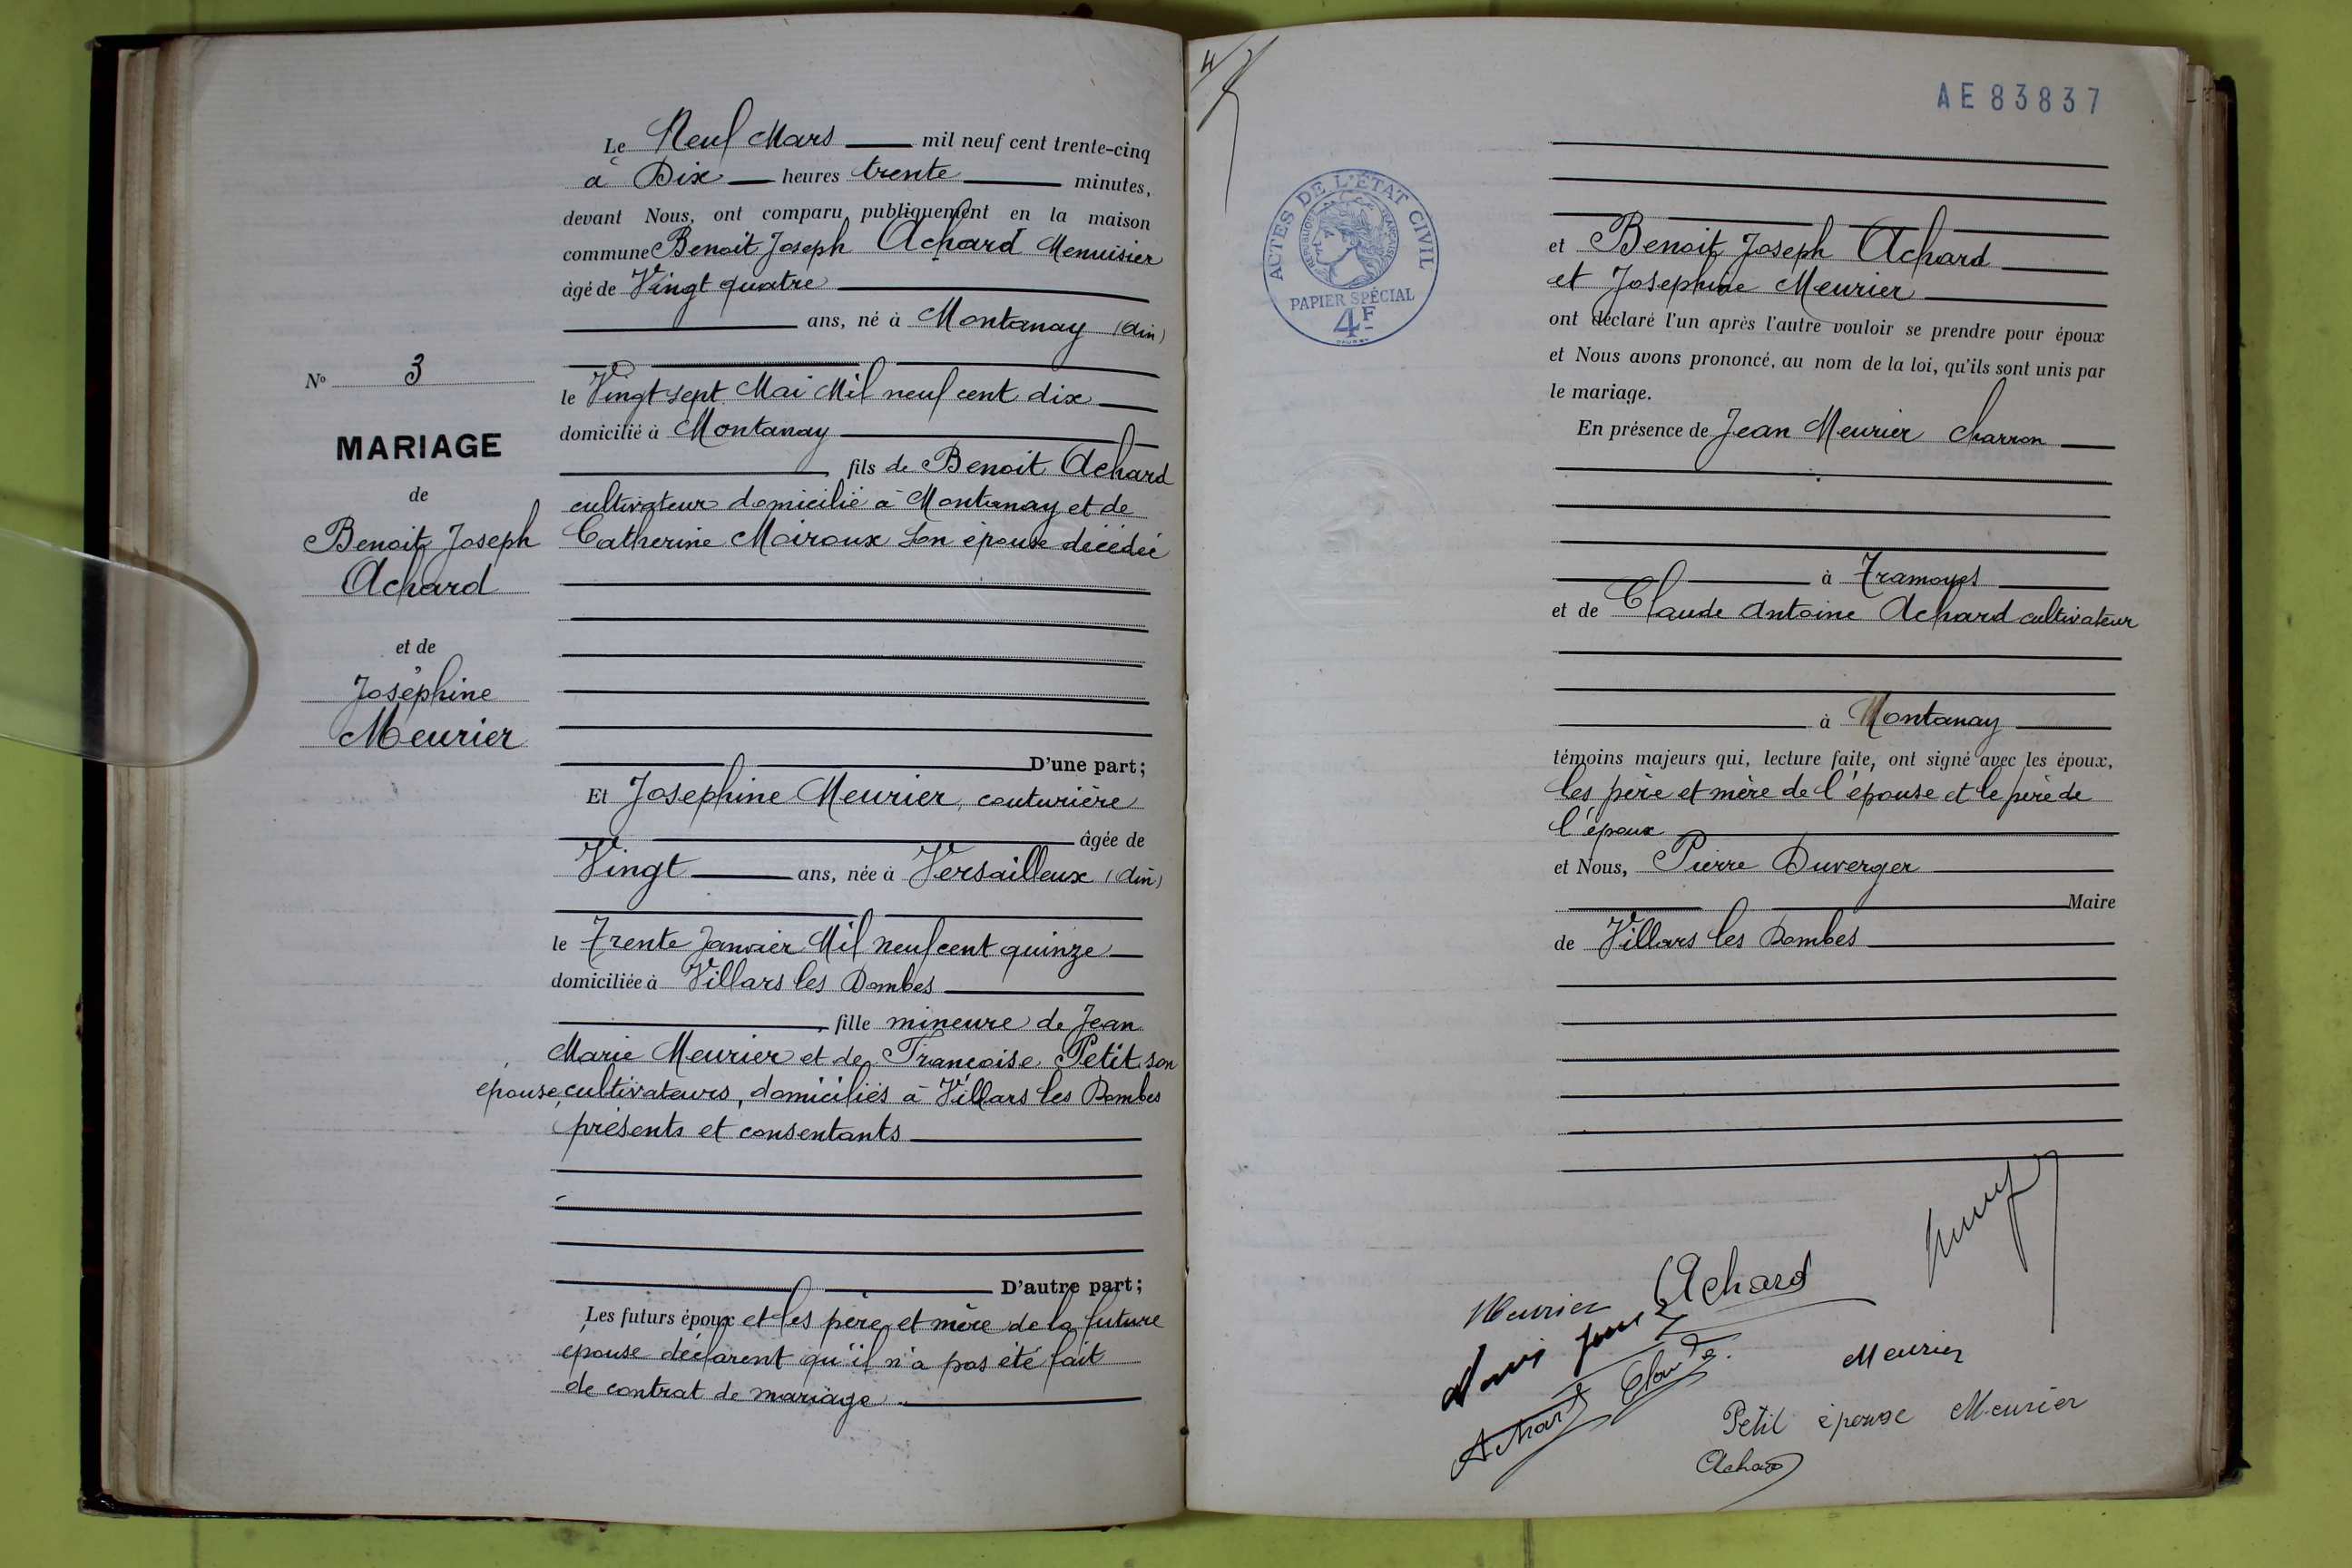 Le Neuf Mars mil neuf cent trente-cinq
à Dix heures trente minutes,
devant Nous, ont comparu publiquement en la maison
commune Benoit Joseph Achard Menuisier
âgé de Vingt quatre
ans, né à Montanay (Ain)
le Vingt sept Mai Mil neuf cent dix
domicilié à Montanay
fils de Benoit Achard
cultivateur domicilié à Montanay et de
Catherine Moiroux son épouse décédée
D'une part;
Et Josephine Meurier, couturière
âgée de
Vingt ans, née à Versailleux (Ain)
le Trente Janvier Mil neuf cent quinze
domiciliée à Villars les Dombes
fille mineure de Jean
Marie Meurier et de Françoise Petit son
epouse cultivateurs, domiciliés à Villars les Dombes
présents et consentants
D'autre part;
Les futurs époux et les père et mère de la future
épouse déclarent qu'il n'a pas été fait
de contrat de mariage
No 3
MARIAGE
de
Benoit Joseph
Achard
et de
Joséphine
Meurier
4
AE83837
ACTES DE L'ÉTAT CIVIL
RÉPUBLIQUE FRANÇAISE
PAPIER SPÉCIAL
4F
et Benoit Joseph Achard
et Josephine Meurier
ont déclaré l'un après l'autre vouloir se prendre pour époux
et Nous avons prononcé, au nom de la loi, qu'ils sont unis par
le mariage.
En présence de Jean Meurier Charron
à Tramoyes
et de Claude Antoine Achard cultivateur
à Montanay
témoins majeurs qui, lecture faite, ont signé avec les époux,
les père et mère de l'épouse et le père de
l'époux
et Nous, Pierre Duverger
Maire
de Villars les Dombes
Achard
Meurier
Meurier
Achard Claude
Petit épouse Meurier
Achard